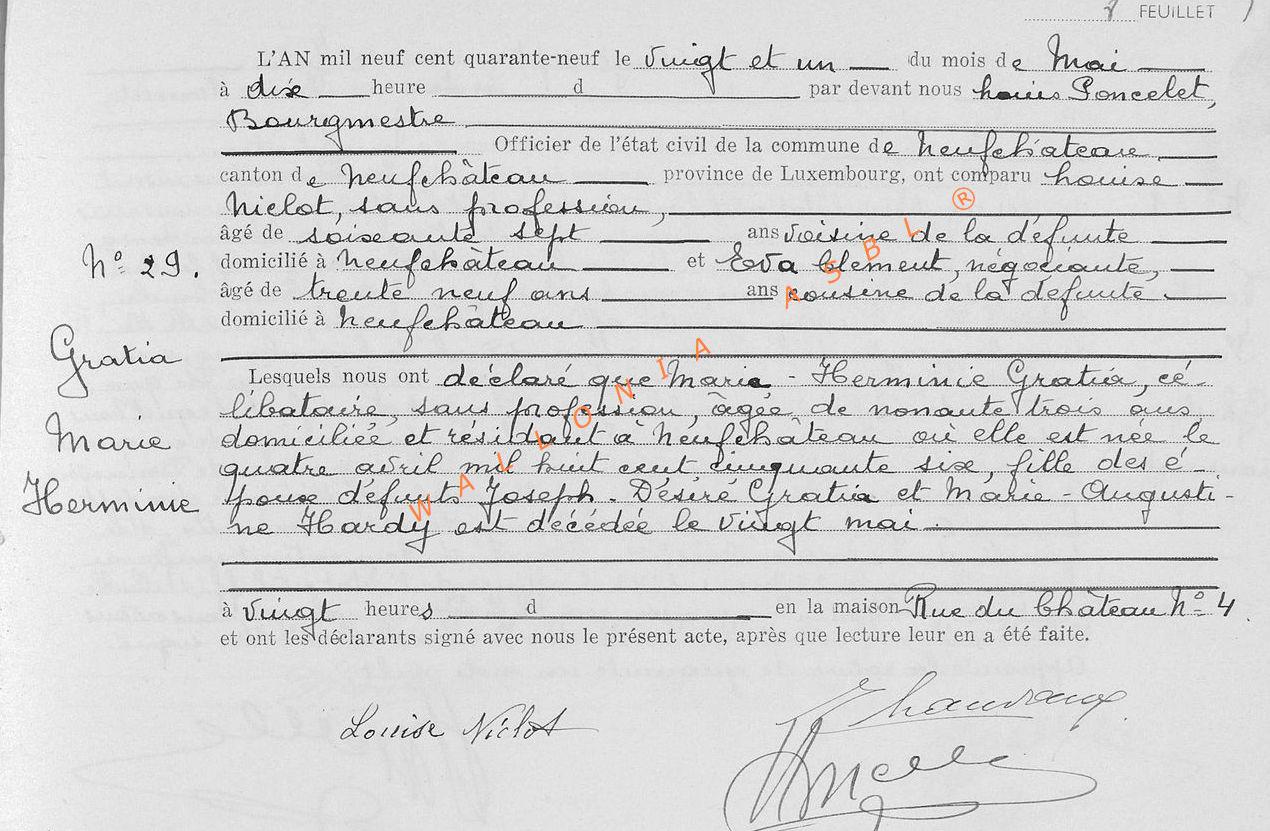 FEUILLET
L'AN mil neuf cent quarante-neuf le vingt et un du mois de Mai
à dix heure d par devant nous Louis Poncelet,
Bourgmestre
Officier de l'état civil de la commune de Neufchâteau
canton de Neufchâteau province de Luxembourg, ont comparu Louise
Niclot, sans profession,
âgé de soixante sept ans voisine de la défunte
Nº 29. domicilié à Neufchateau et Eva Clement, négociante,
âgé de trente neuf ans ans cousine de la défunte.
domicilié à Neufchâteau
Gratia
Lesquels nous ont déclaré que Marie - Herminie Gratia, cé-
libataire, sans profession, âgée de nonante trois ans,
Marie
domiciliée et résidant à Neufchâteau où elle est née le
quatre avril mil huit cent cinquante six, fille des é-
Herminie
poux défunts Joseph - Désiré Gratia et Marie - Augusti-
ne Hardy est décédée le vingt mai.
à vingt heures d en la maison Rue du Château Nº 4
et ont les déclarants signé avec nous le présent acte, après que lecture leur en a été faite.
Louise Niclot
WALLONIA ASBL ®